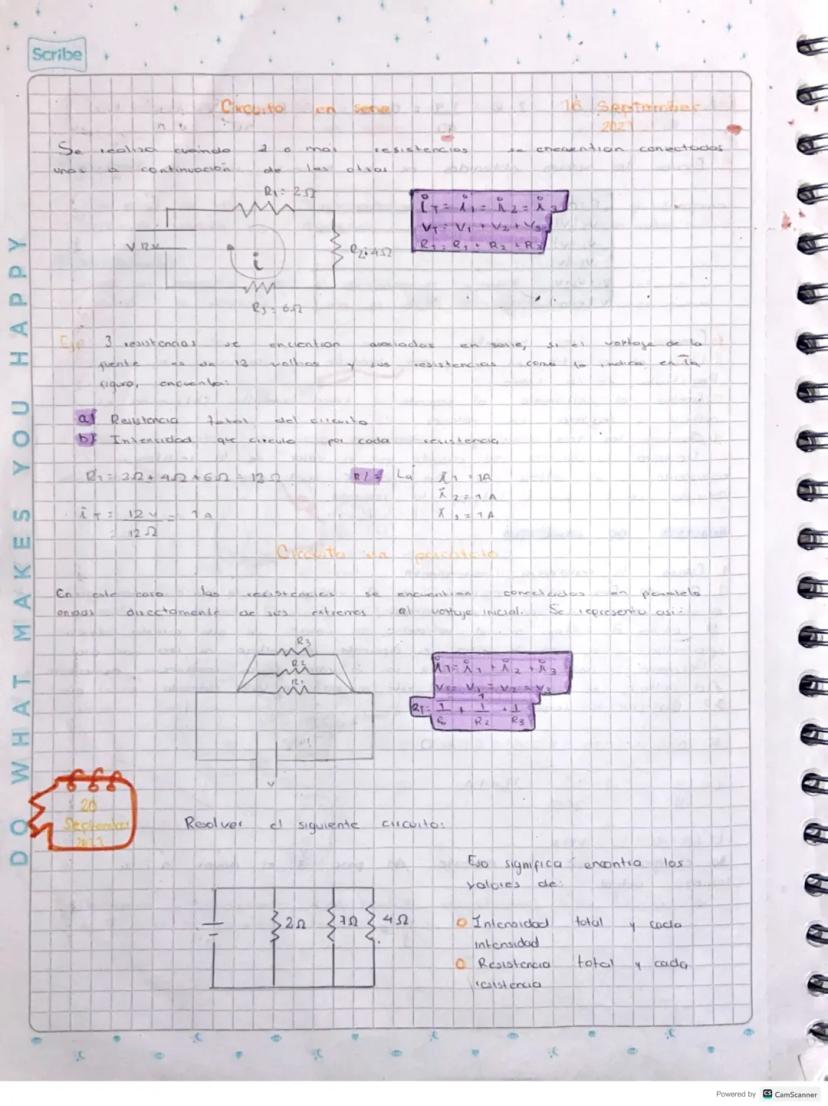 Scribe
Circuito en serie 16 September
2021
Se realiza cuando 2 o mas resistencias se encuentran conectadas
unas a continuación de las otras
R₁ = 2Ω
V 12v
i
R₂: 4Ω
R₃ = 6Ω
i_T = i₁ = i₂ = i₃
V_T = V₁ + V₂ + V₃
R_T = R₁ + R₂ + R₃
Eje 3 resistencias se encuentran asociadas en serie, si el voltaje de la
fuente es de 12 voltios y sus resistencias como lo indica en la
figura, encuentra:
a) Resistencia total del circuito
b) Intensidad que circula por cada resistencia
R_T = 2Ω + 4Ω + 6Ω = 12Ω
i_T = 12 v = 1 a
12Ω
R/= La i₁ = 1A
i₂ = 1 A
i₃ = 1 A
Circuito en paralelo
En este caso las resistencias se encuentran conectadas en paralelo
directamente de sus extremos al voltaje inicial. Se representa asi:
R₃
R₂
R₁
V
i_T = i₁ + i₂ + i₃
V_T = V₁ = V₂ = V₃
R_T = 1 + 1 + 1
R₁ R₂ R₃
20
September
2021
Resolver el siguiente circuito:
2Ω
4Ω
Eso significa encontra los
valores de:
Intensidad total y cada
intensidad
Resistencia total y cada
resistencia
DO WHAT MAKES YOU HAPPY
Powered by CS CamScanner